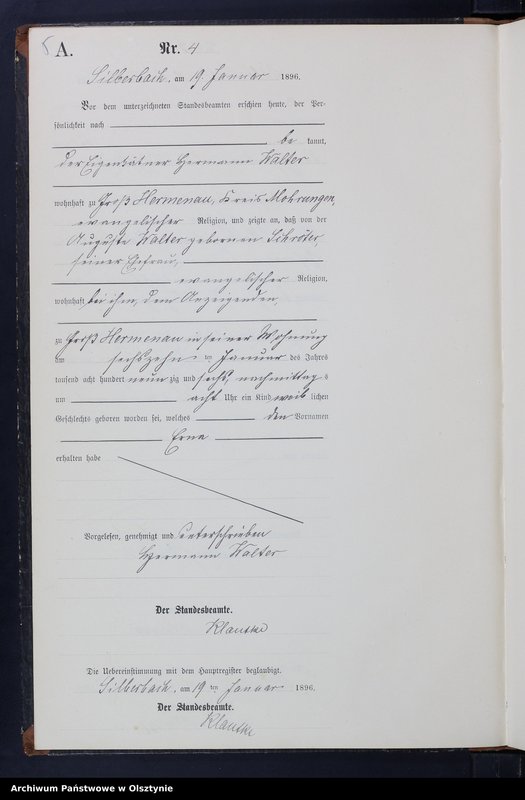 5 A. Nr. 4
Silberbach, am 19. Januar 1896.
Vor dem unterzeichneten Standesbeamten erschien heute, der Per-
sönlichkeit nach
be kannt,
der Eigenkätner Hermann Walter
wohnhaft zu Groß Hermenau, Kreis Mohrungen,
evangelischer Religion, und zeigte an, daß von der
Auguste Walter gebornen Schröter,
seiner Ehefrau,
evangelischer Religion,
wohnhaft bei ihm, dem Anzeigenden,
zu Groß Hermenau in seiner Wohnung
am sechszehn ten Januar des Jahres
tausend acht hundert neun zig und sechs, nachmittag s
um acht Uhr ein Kind weib lichen
Geschlechts geboren worden sei, welches den Vornamen
Erna
erhalten habe
Vorgelesen, genehmigt und unterschrieben
Hermann Walter
Der Standesbeamte.
Klautke
Die Uebereinstimmung mit dem Hauptregister beglaubigt.
Silberbach, am 19 ten Januar 1896.
Der Standesbeamte.
Klautke
Archiwum Państwowe w Olsztynie